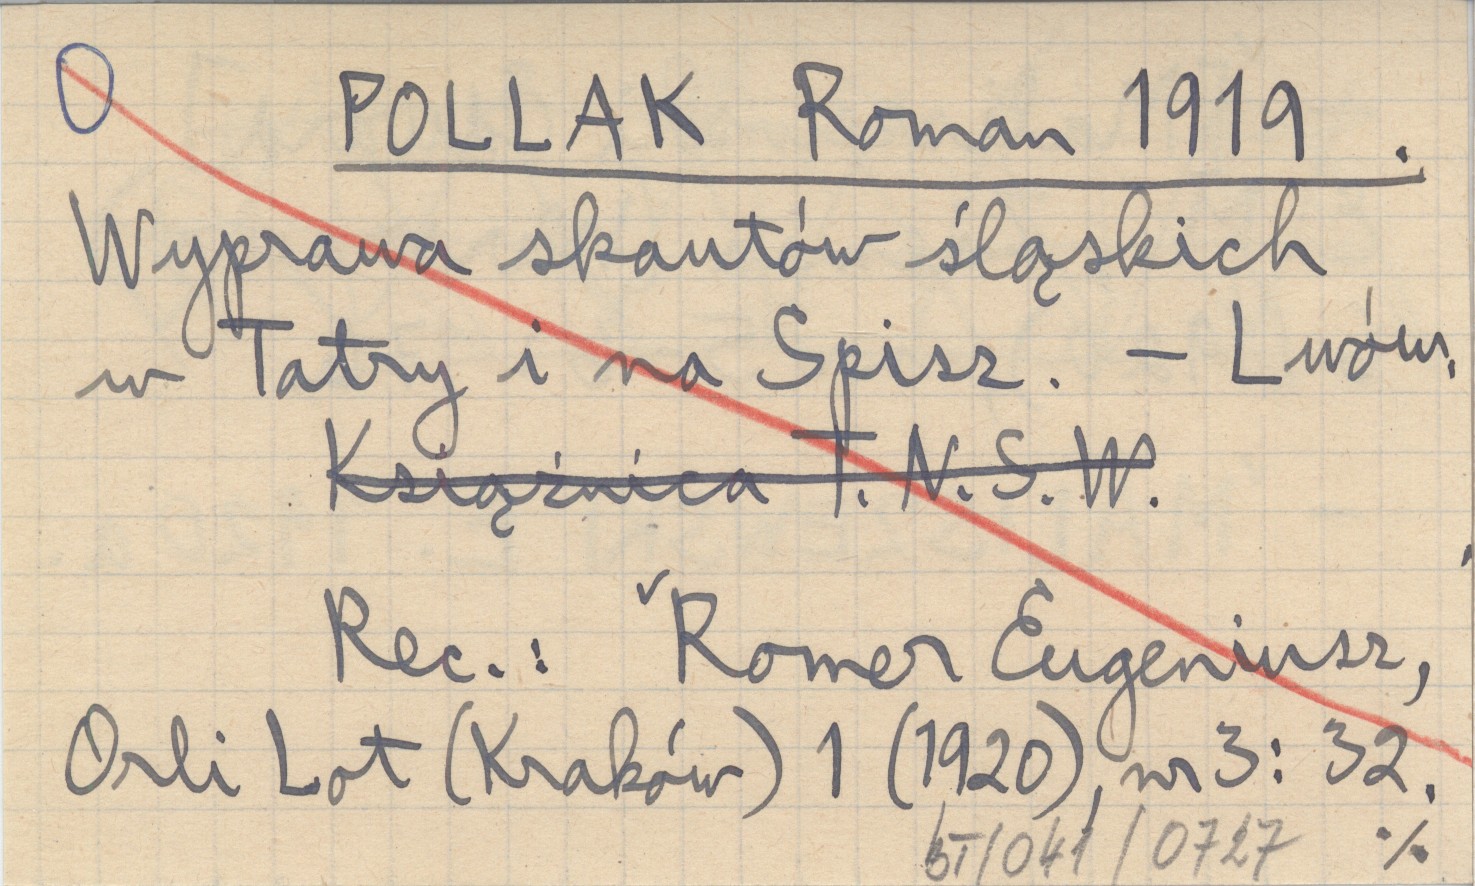 POLLAK Roman 1919.
Wyprawa skautów śląskich
w Tatry i na Spisz. – Lwów.
Książnica T. N. S. W.
Rec.: ˇRomer Eugeniusz,
Orli Lot (Kraków) 1 (1920), nr 3: 32.
bT/041/0727 ./.